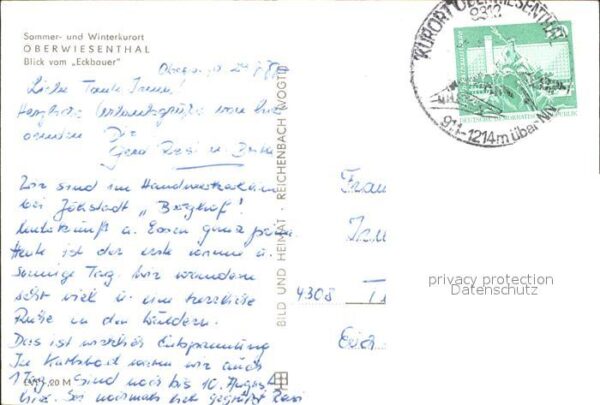 Sommer- und Winterkurort
OBERWIESENTHAL
Blick vom „Eckbauer"
Liebe Tante Irene!
Herzliche Urlaubsgrüße von hier
senden Dir
Gerd Rosi u.
Wir sind im
bei Jöhstadt „Berghof".
Unterkunft u. Essen ganz prima.
Heute ist der erste warme u.
sonnige Tag. Wir wandern
sehr viel u. eine herrliche
Ruhe in den Wäldern.
Das ist wirklich Entspannung
In Karlsbad waren wir auch
1 Tag. Sind noch bis 10. August
hier. Sei nochmals herzl. gegrüßt
20 M
BILD UND HEIMAT · REICHENBACH (VOGTL)
KURORT OBERWIESENTHAL
9312
911-1214 m über NN
DEUTSCHE DEMOKRATISCHE REPUBLIK
Frau
4308
privacy protection
Datenschutz